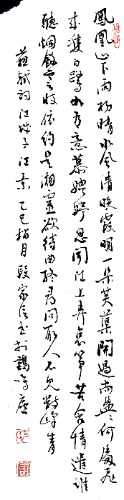 鳳凰山下雨初晴水風清晚霞明一朵芙蕖開過尚盈盈何處飛
來雙白鷺如有意慕娉婷忽聞江上弄哀箏苦含情遣誰
聽烟斂雲收依約是湘靈欲待曲終尋問取人不見數峰青
蘇軾詞江城子江景乙巳